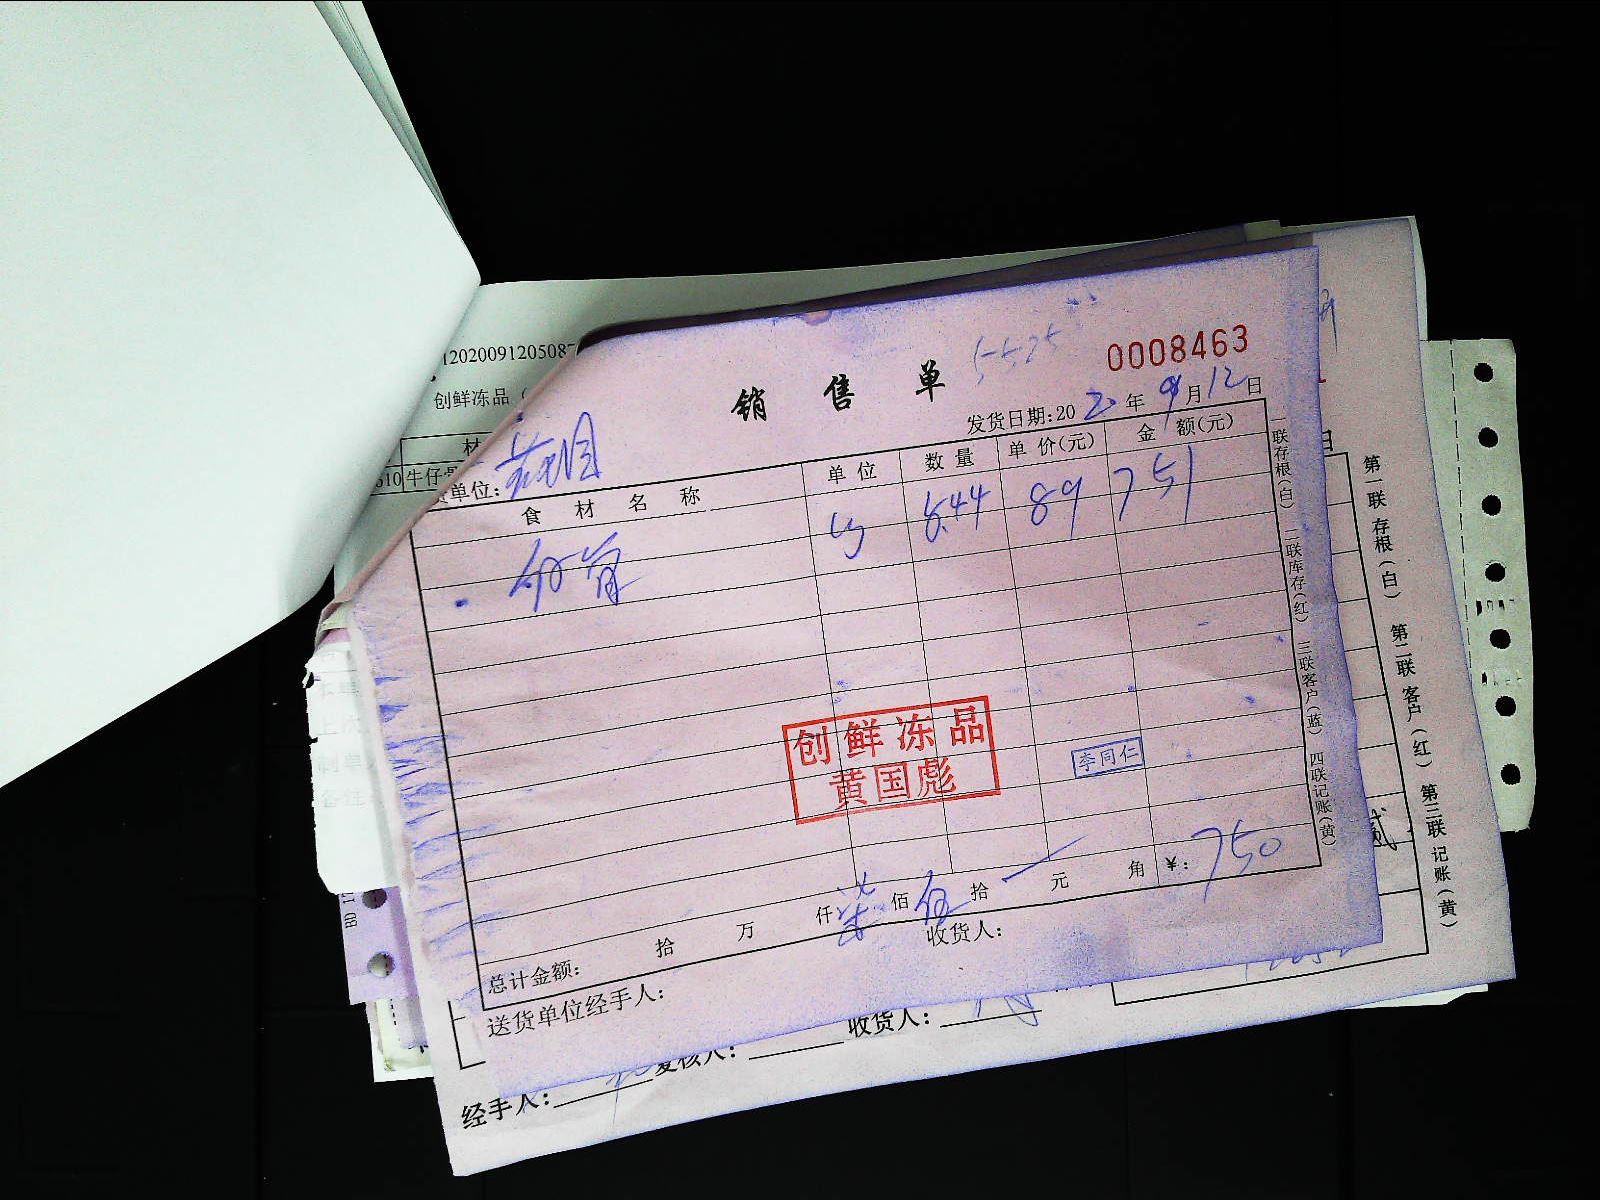 12020091205087
创鲜冻品（
材
610 牛仔骨
5-525
0008463
销 售 单
发货日期:2020年9月12日
货单位:
食 材 名 称 单 位 数 量 单 价(元) 金 额(元)
仔骨 8.44 89 751
创鲜冻品
黄国彪
李同仁
总计金额: 拾 万 仟 柒 佰 伍 拾 元 角 ¥: 750
送货单位经手人: 收货人:
一联存根(白) 二联库存(红) 三联客户(蓝) 四联记账(黄)
第一联 存根(白) 第二联 客户(红) 第三联 记账(黄)
贰
经手人: 复核人: 收货人: